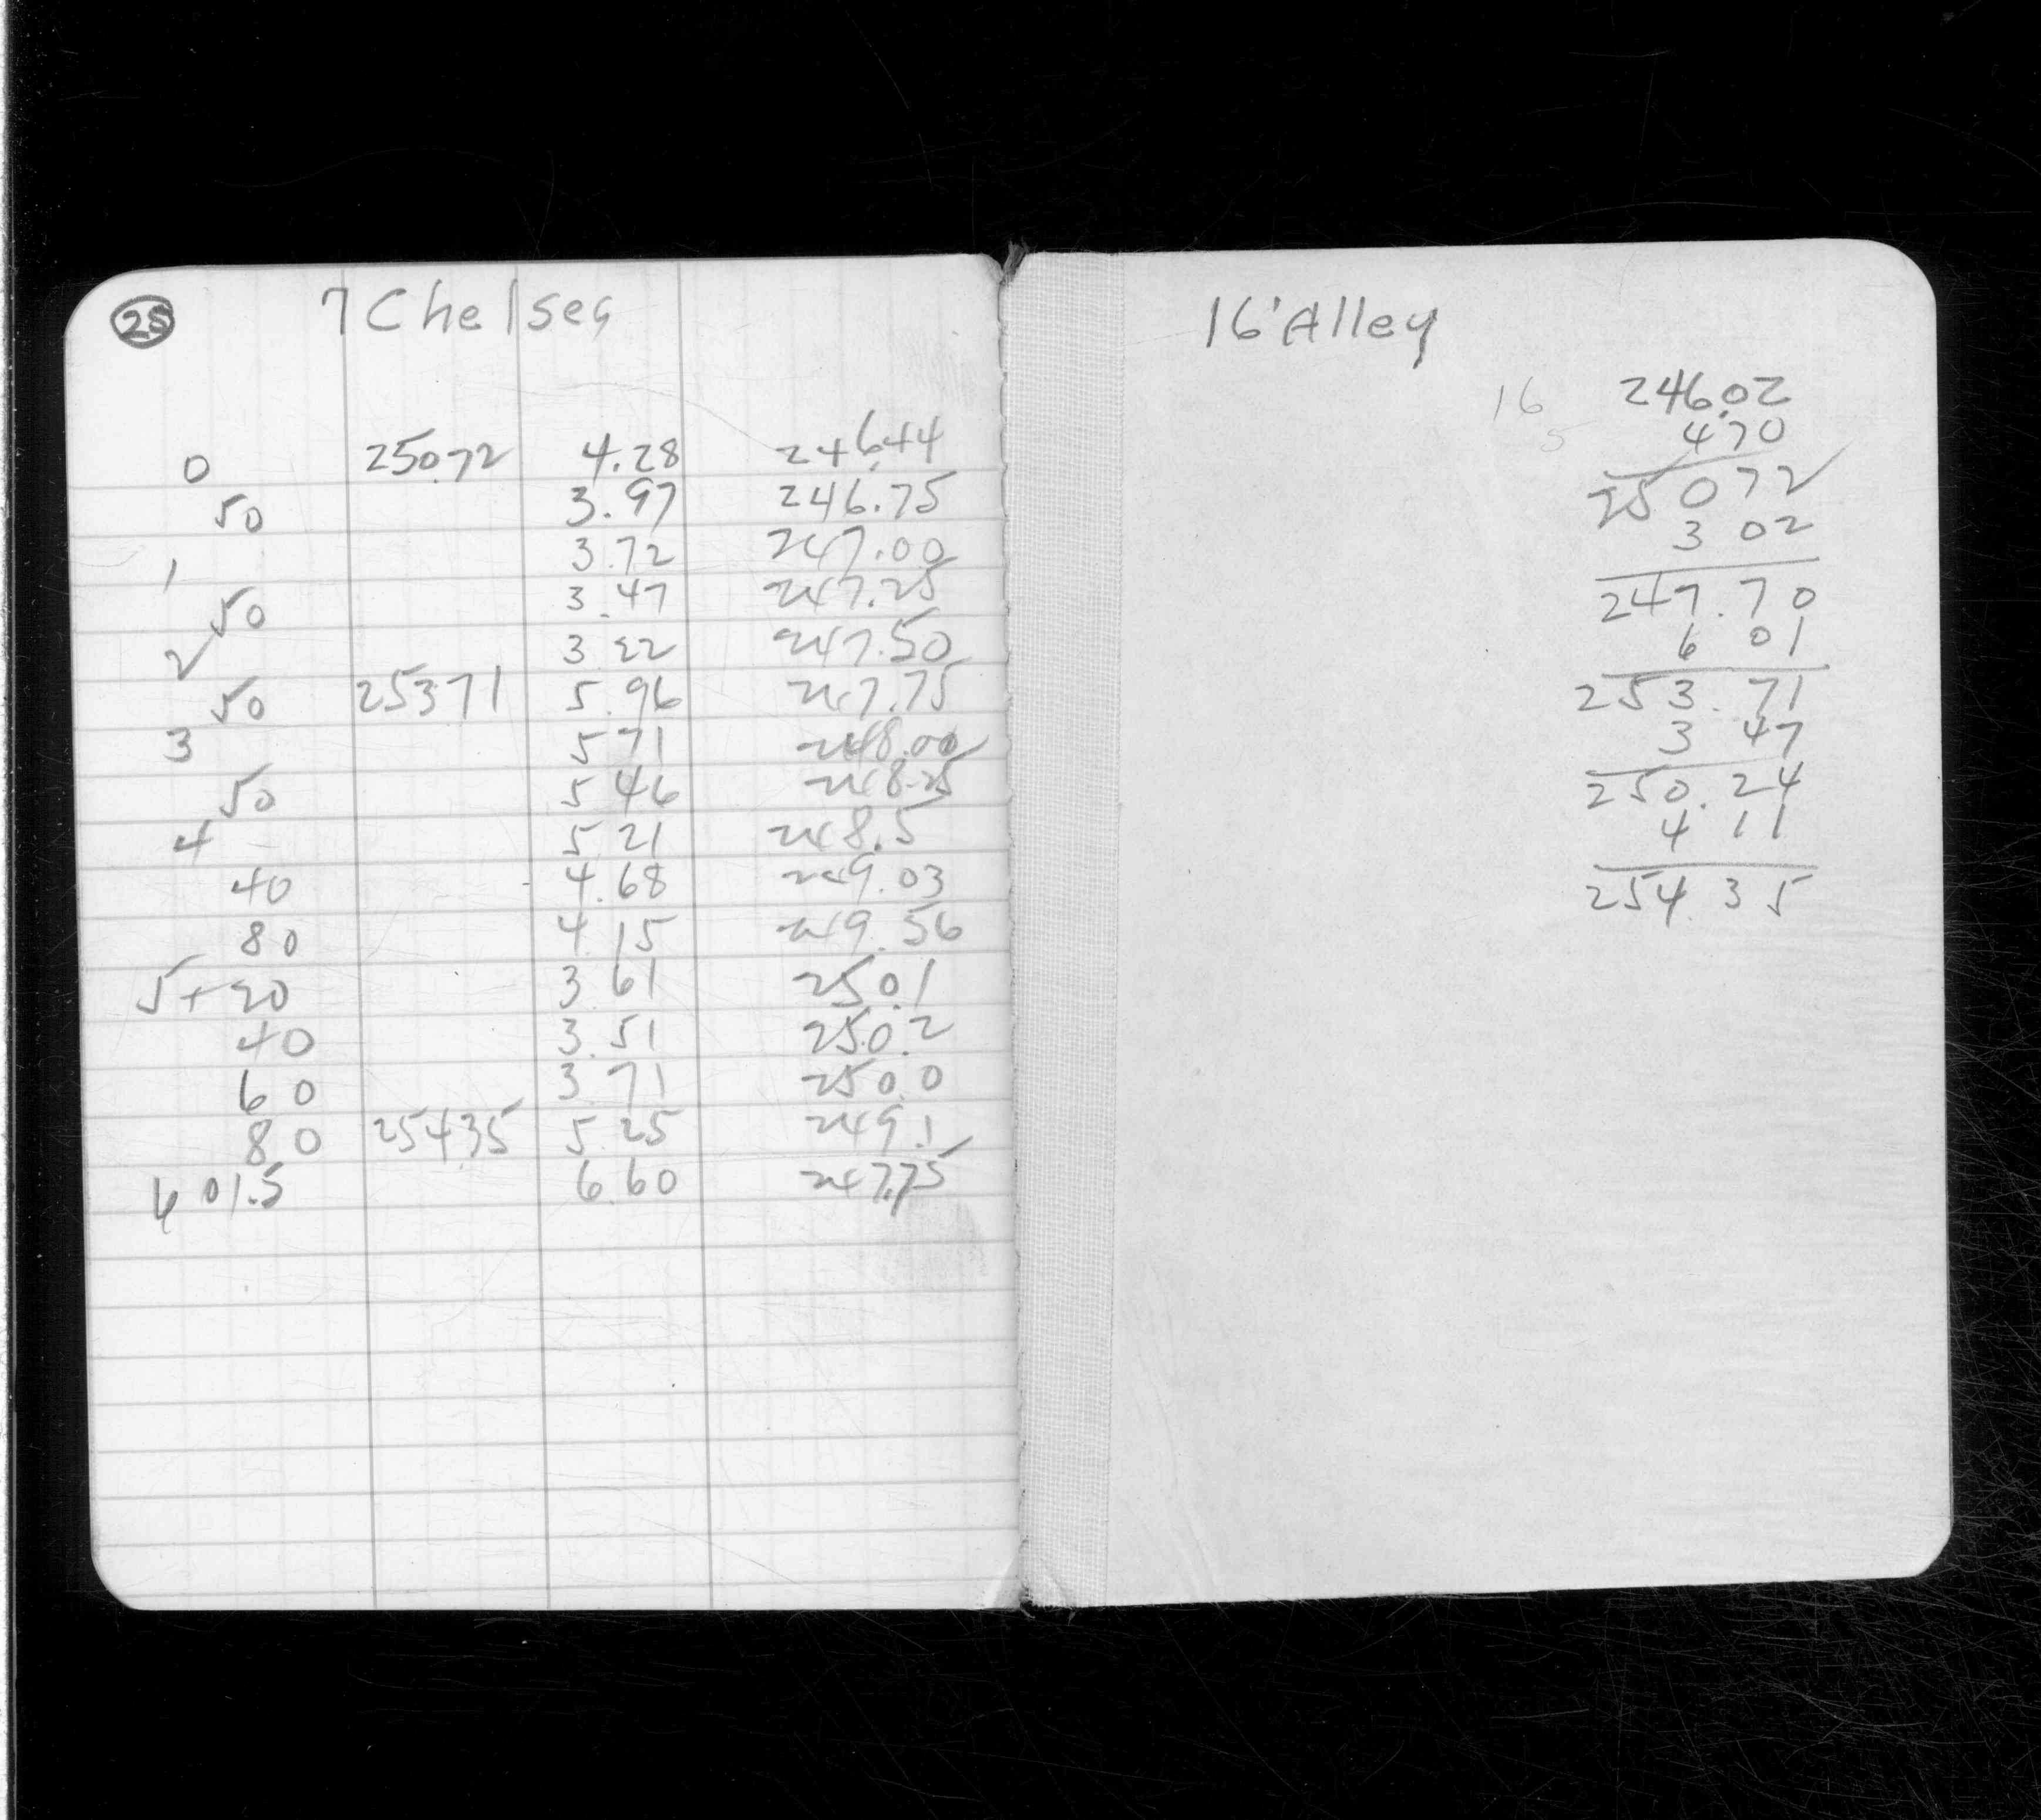 25 7 Chelsea
0 250.72 4.28 246.44
50 3.97 246.75
1 3.72 247.00
50 3.47 247.25
2 3.22 247.50
50 253.71 5.96 247.75
3 5.71 248.00
50 5.46 248.25
4 5.21 248.5
40 4.68 249.03
80 4.15 249.56
5+20 3.61 250.1
40 3.51 250.2
60 3.71 250.0
80 254.35 5.25 249.1
6 01.5 6.60 247.75
16' Alley
16 246.02
5 4.70
250 72
3 02
247.70
6 01
253.71
3 47
250.24
4 11
254.35